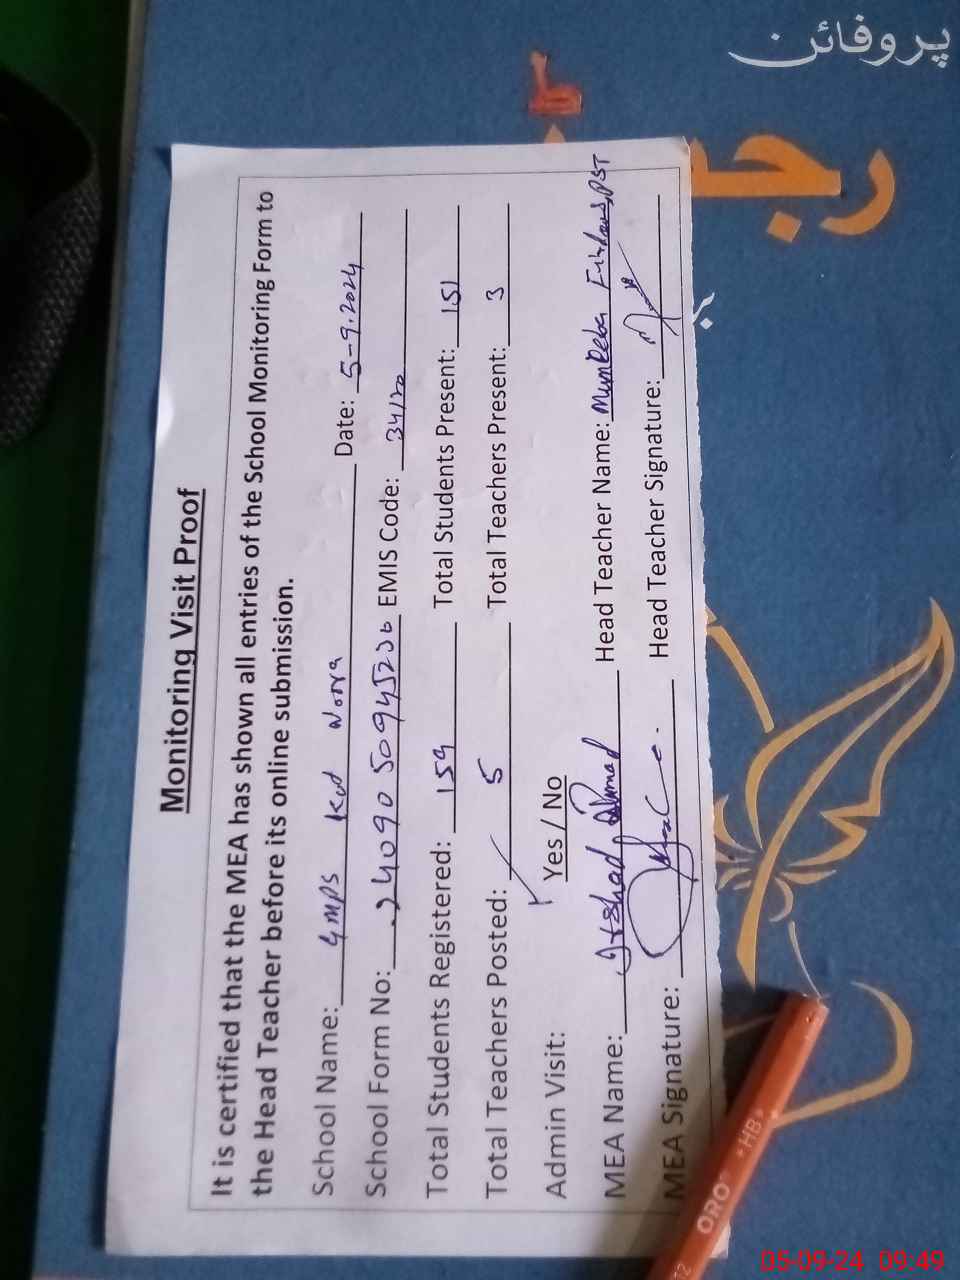 Monitoring Visit Proof
It is certified that the MEA has shown all entries of the School Monitoring Form to
the Head Teacher before its online submission.
School Name: GMPS Kd Noora Date: 5-9-2024
School Form No: 2409050945230 EMIS Code: 34120
Total Students Registered: 159 Total Students Present: 151
Total Teachers Posted: 5 Total Teachers Present: 3
Admin Visit: Yes / No
MEA Name: Irshad Ahmad Head Teacher Name: Firdous, PST
MEA Signature: Head Teacher Signature:
پروفائن
رجـ
ORO HB
05-09-24 09:49